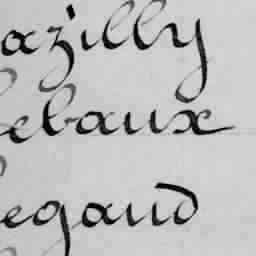 azilly
ebaux
egand